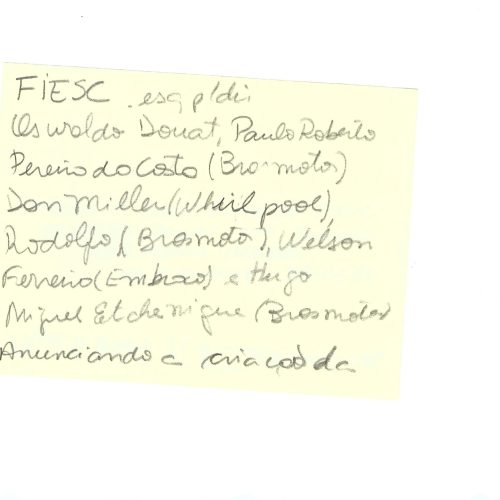 FIESC - esq p/ dir
Oswaldo Douat, Paulo Roberto
Pereira da Costa (Brasmotor)
Don Miller (Whirlpool),
Rodolfo (Brasmotor), Welson
Ferreira (Embraco) e Hugo
Miguel Etchenique (Brasmotor)
Anunciando a criação da